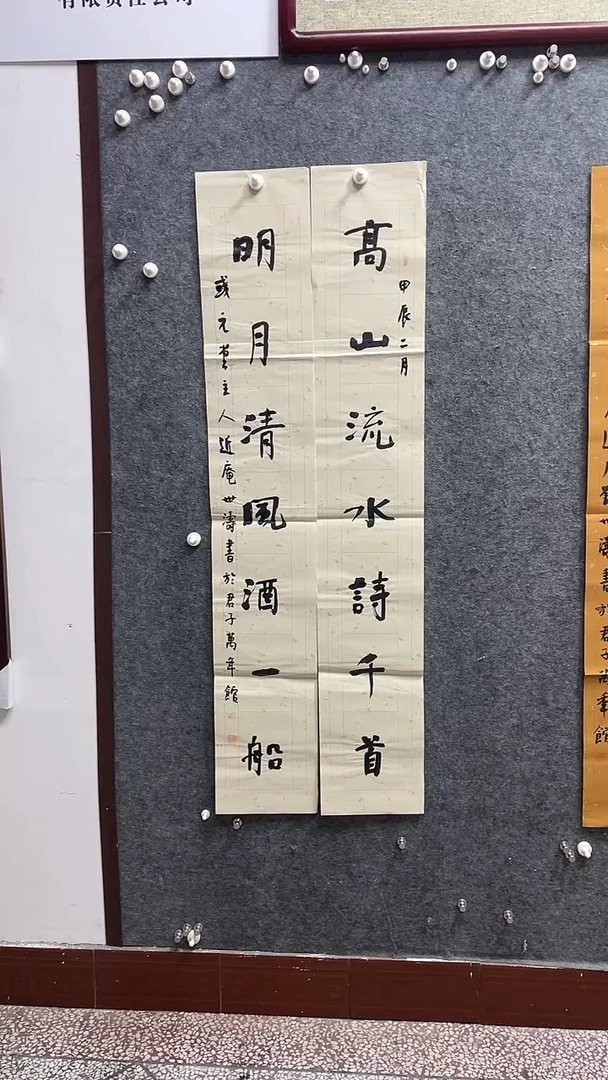 有限责任公司
甲辰二月
高山流水詩千首
明月清風酒一船
或元堂主人近庵世濤書於君子萬年館
世濤書於君子萬年館